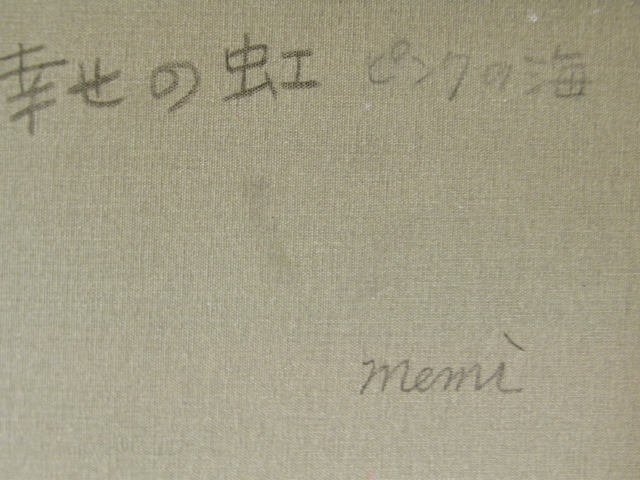 幸せの虹 ピンクの海
memi